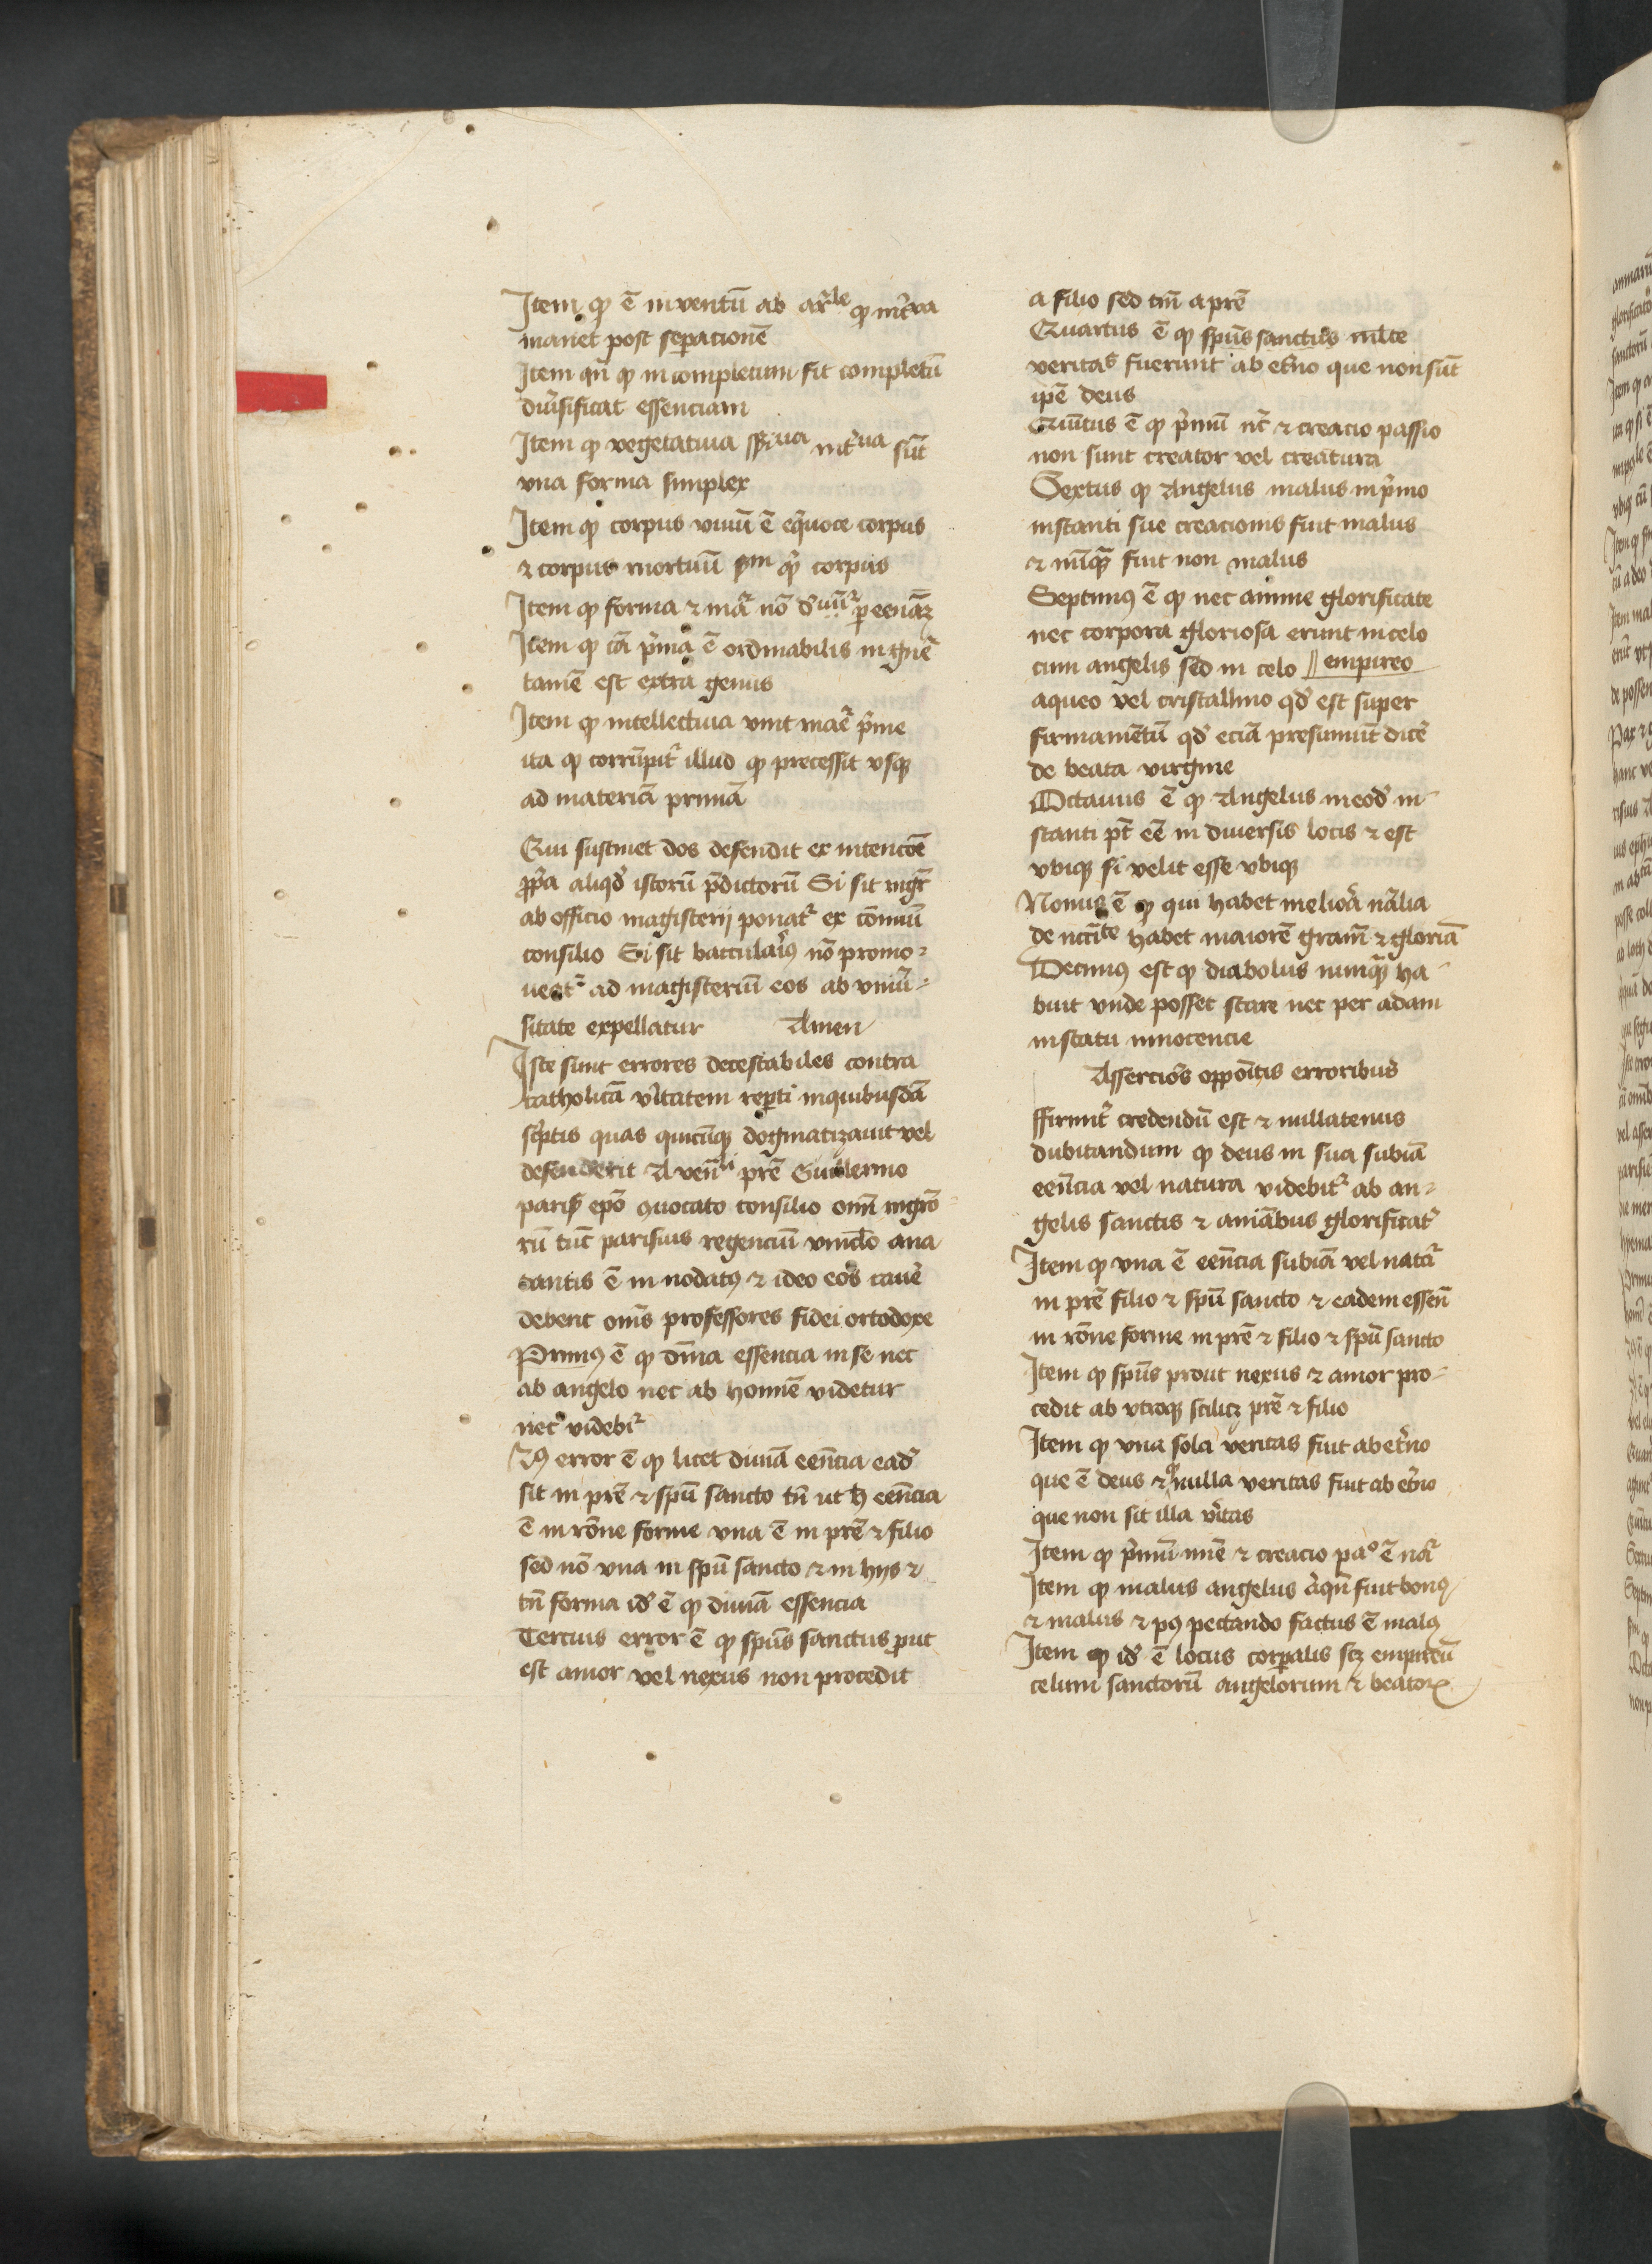 Item ꝙ ē inventū ab arᷓle ꝙ intᷓva
manet post seꝑacionē
Item qn̄ ꝙ incompletum fit completū
diūsificat essenciam
Item ꝙ vegetatiua intᷓua sūt
vna forma simplex
Item ꝙ corpus viuū ē eq̄uoce corpus
⁊ corpus mortuū ẜm qᷓ corpus
Item ꝙ forma ⁊ mᷓa nō ꝑ eēnᷓaꝫ
Item ꝙ cā pᷓma ē ordinabilis in gn̄e
tamē est extra genus
Item ꝙ intellectiua vnit maᷓe pᷓme
ita ꝙ corrūpitᷣ illud ꝙ precessit vsqꝫ
ad materiā primā
Qui sustinet dos defendit ex intencōe
ꝓpᷓa aliqd̄ istorū p̄dictorū Si sit mgr̄
ab officio magisterij ponatᷣ ex cōmuī
consilio Si sit baccularꝰ nō promo⸗
ueatᷣ ad magisteriū eos ab vniū⸗
sitate expellatur Amen
Iste sunt errores detestabiles contra
catholicā v̄itatem reꝑti inquibusdā
scᷓptis quas quicūqꝫ dogmatizauit vel
defenderit A ven̄li prē Guillermo
parisꝭ ep̄o ꝯuocato consilio om̄ mgrō
rū tūc parisius regenciū vinclo ana
cantis ē in nodatꝰ ⁊ ideo eos cauē
debent om̄s professores fidei ortodoxe
Primꝰ ē ꝙ dīna essencia in se nec
ab angelo nec ab homīe videtur
nec videbiᷣ
2ꝰ error ē ꝙ licet diuīa eēncia ead̄
sit in prē ⁊ spū sancto tn̄ ut h̄ eēncia
ē in rōne forme vna ē in prē ⁊ filio
sed nō vna in spū sancto ⁊ in hijs ⁊
tn̄ forma id̄ ē ꝙ diuīa essencia
Tercius error ē ꝙ spūs sanctus ꝓut
est amor vel nexus non procedit
a filio sed tm̄ a prē
Quartus ē ꝙ spūs sanctus mlte
veritaꝭ fuerunt ab etᷓno que non sūt
ip̄e deus
Quītus ē ꝙ pᷓmū nc̄ ⁊ creacio passio
non sunt creator vel creatura
Sextus ꝙ Angelus malus in pᷓmo
instanti sue creacionis fuit malus
⁊ nūqᷓ fuit non malus
Septimꝰ ē ꝙ nec anime glorificate
nec corpora gloriosa erunt in celo
cum angelis sed in celo || empireo
aqueo vel cristallino qd̄ est super
firmamētū qd̄ eciā presumūt dicē
de beata virgine
Octauus ē ꝙ Angelus in eod̄ in⸗
stanti pt̄ eē in diuersis locis ⁊ est
vbiqꝫ si velit esse vbiqꝫ
Nonus ē ꝙ qui habet meliora nᷓalia
de nccīte habet maiorē gram̄ ⁊ gloriā
Decimꝰ est ꝙ diabolus nunqᷓ ha⸗
buit vnde posset stare nec per adam
in statu innocencie
Assercio᷒s oppoītis erroribus
ffirmitᷣ credendū est ⁊ nullatenus
dubitandum ꝙ deus in sua subiā
eēncia vel natura videbitᷣ ab an⸗
gelis sanctis ⁊ aniābus glorificatᷣ
Item ꝙ vna ē eēncia subiā vel natᷓa
in prē filio ⁊ spū sancto ⁊ eadem essen̄
in rōne forme in prē ⁊ filio ⁊ spū sancto
Item ꝙ spūs prout nexus ⁊ amor pro⸗
cedit ab vtroqꝫ scilicꝫ prē ⁊ filio
Item ꝙ vna sola veritas fuit ab etᷓno
que ē deus ⁊ ꝙ nulla veritas fuit ab etᷓno
que non sit illa v̄itas
Item ꝙ pᷓmū nūc ⁊ creacio paᵒ ē nᷓa
Item ꝙ malus angelus aliqn̄ fuit bonꝰ
⁊ malus ⁊ pꝰ peccando factus ē malꝰ
Item ꝙ id̄ ē locus corꝑalis scꝫ empireū
celum sanctorū angelorum ⁊ beatoꝝ